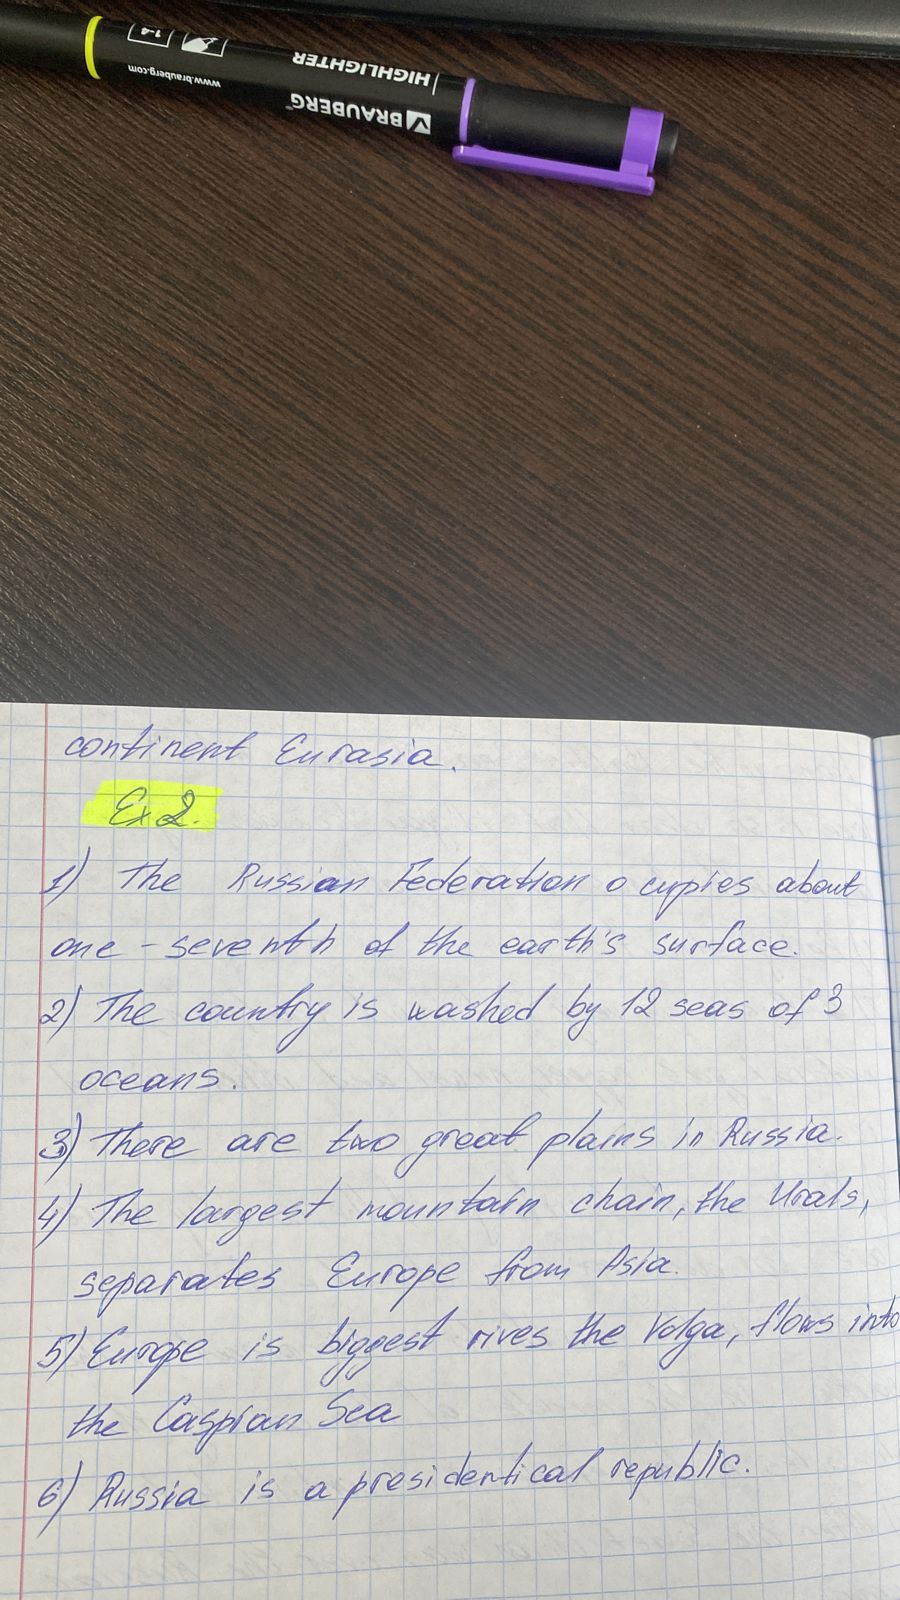 1-4
www.brauberg.com
HIGHLIGHTER
BRAUBERG
continent Eurasia.
Ex 2.
1) The Russian Federation o cupies about
one - seventh of the earth's surface.
2) The country is washed by 12 seas of 3
oceans.
3) There are two great plains in Russia.
4) The largest mountain chain, the Urals,
separates Europe from Asia.
5) Europe is biggest rives the Volga, flows into
the Caspian Sea
6) Russia is a presidentical republic.